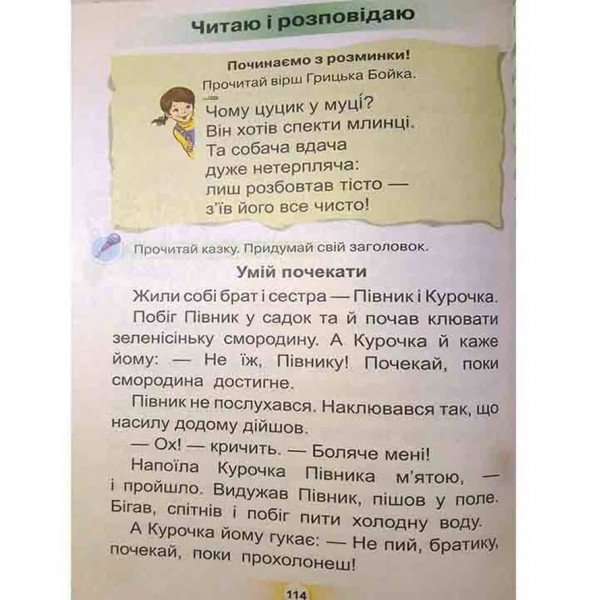 Читаю і розповідаю
Починаємо з розминки!
Прочитай вірш Грицька Бойка.
Чому цуцик у муці́?
Він хотів спекти млинці.
Та собача вдача
дуже нетерпляча:
лиш розбовтав тісто —
з’їв його все чисто!
Прочитай казку. Придумай свій заголовок.
Умій почекати
Жили собі брат і сестра — Півник і Курочка.
Побіг Півник у садок та й почав клювати
зеленісіньку смородину. А Курочка й каже
йому: — Не їж, Півнику! Почекай, поки
смородина достигне.
Півник не послухався. Наклювався так, що
насилу додому дійшов.
— Ох! — кричить. — Боляче мені!
Напоїла Курочка Півника м’ятою, —
і пройшло. Видужав Півник, пішов у поле.
Бігав, спітнів і побіг пити холодну воду.
А Курочка йому гукає: — Не пий, братику,
почекай, поки прохолонеш!
114